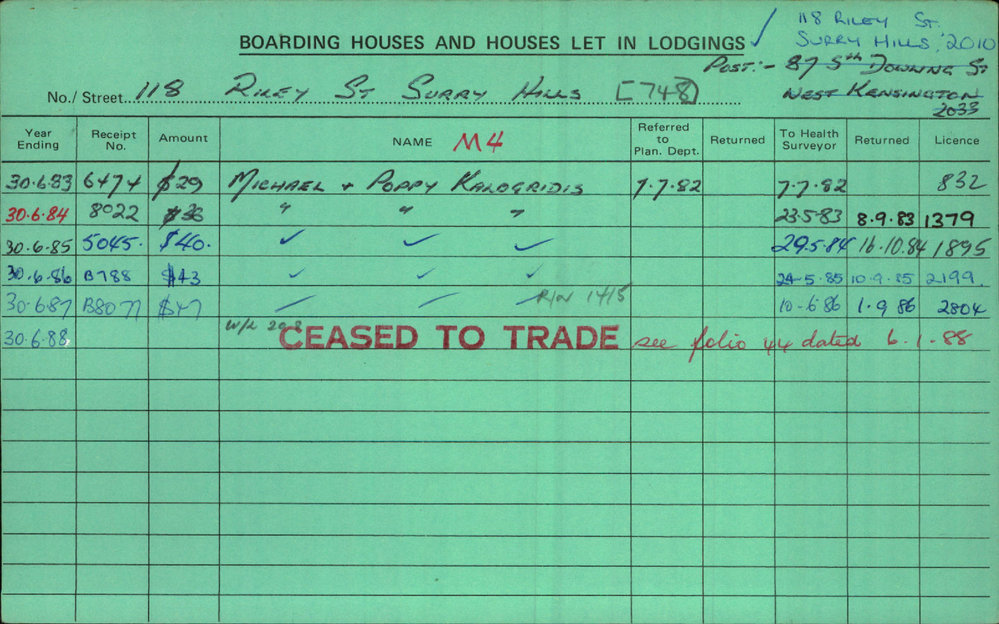 BOARDING HOUSES AND HOUSES LET IN LODGINGS ✓
118 RILEY ST.
SURRY HILLS, 2010
POST:- 87 Sth DOWLING ST
WEST KENSINGTON
2033
No./Street. 118 RILEY ST SURRY HILLS [748]
Year Ending Receipt No. Amount NAME M4 Referred to Plan. Dept. Returned To Health Surveyor Returned Licence
30.6.83 6474 $29 MICHAEL + POPPY KALOGRIDIS 7.7.82 7.7.82 832
30.6.84 8022 $36 " " " 23.5.83 8.9.83 1379
30.6.85 5045. $40. ✓ ✓ ✓ 29.5.84 16.10.84 1895
30.6.86 B788 $43 ✓ ✓ ✓ 24.5.85 10.9.85 2199.
30.6.87 B8077 $47 10.6.86 1.9.86 2804
30.6.88 CEASED TO TRADE see folio 44 dated 6.1.88